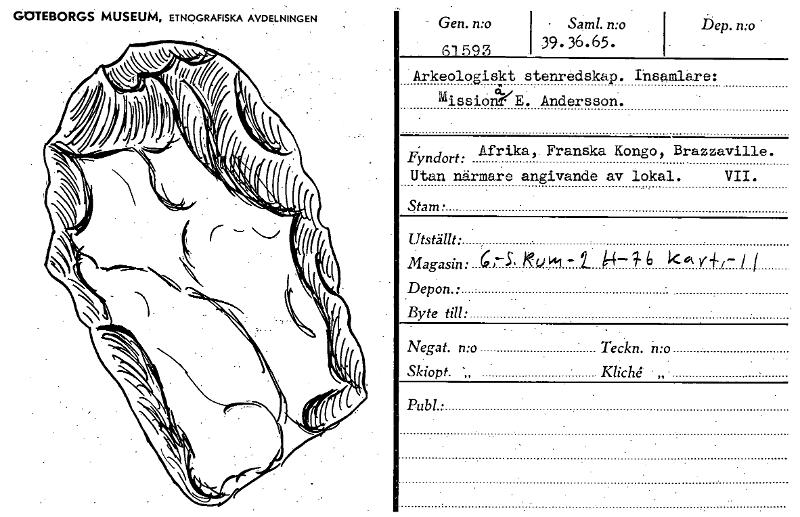 GÖTEBORGS MUSEUM, ETNOGRAFISKA AVDELNINGEN
Gen. n:o Saml. n:o Dep. n:o
61593 39.36.65.
Arkeologiskt stenredskap. Insamlare:
Missionär E. Andersson.
Fyndort: Afrika, Franska Kongo, Brazzaville.
Utan närmare angivande av lokal. VII.
Stam:
Utställt:
Magasin: G.-S. Rum-2 H-76 Kart.-11
Depon.:
Byte till:
Negat. n:o Teckn. n:o
Skiopt. „ Kliché „
Publ.: